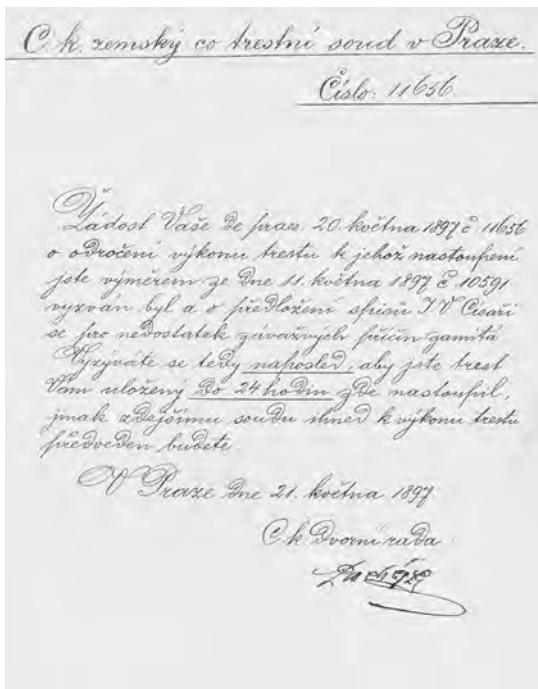 C. k. zemský co trestní soud v Praze.
Číslo: 11656
Žádost Vaše de praes. 20. května 1897 č 11656
o odročení výkonu trestu k jehož nastoupení
jste výměrem ze dne 11. května 1897 č. 10591
vyzván byl a o předložení spisů J. V Císaři
se pro nedostatek závažných příčin zamítá
Vyzýváte se tedy naposled, aby jste trest
Vám uložený do 24 hodin zde nastoupil,
jinak zdejšímu soudu ihned k výkonu trestu
předveden budete.
V Praze dne 21. května 1897.
C. k. dvorní rada